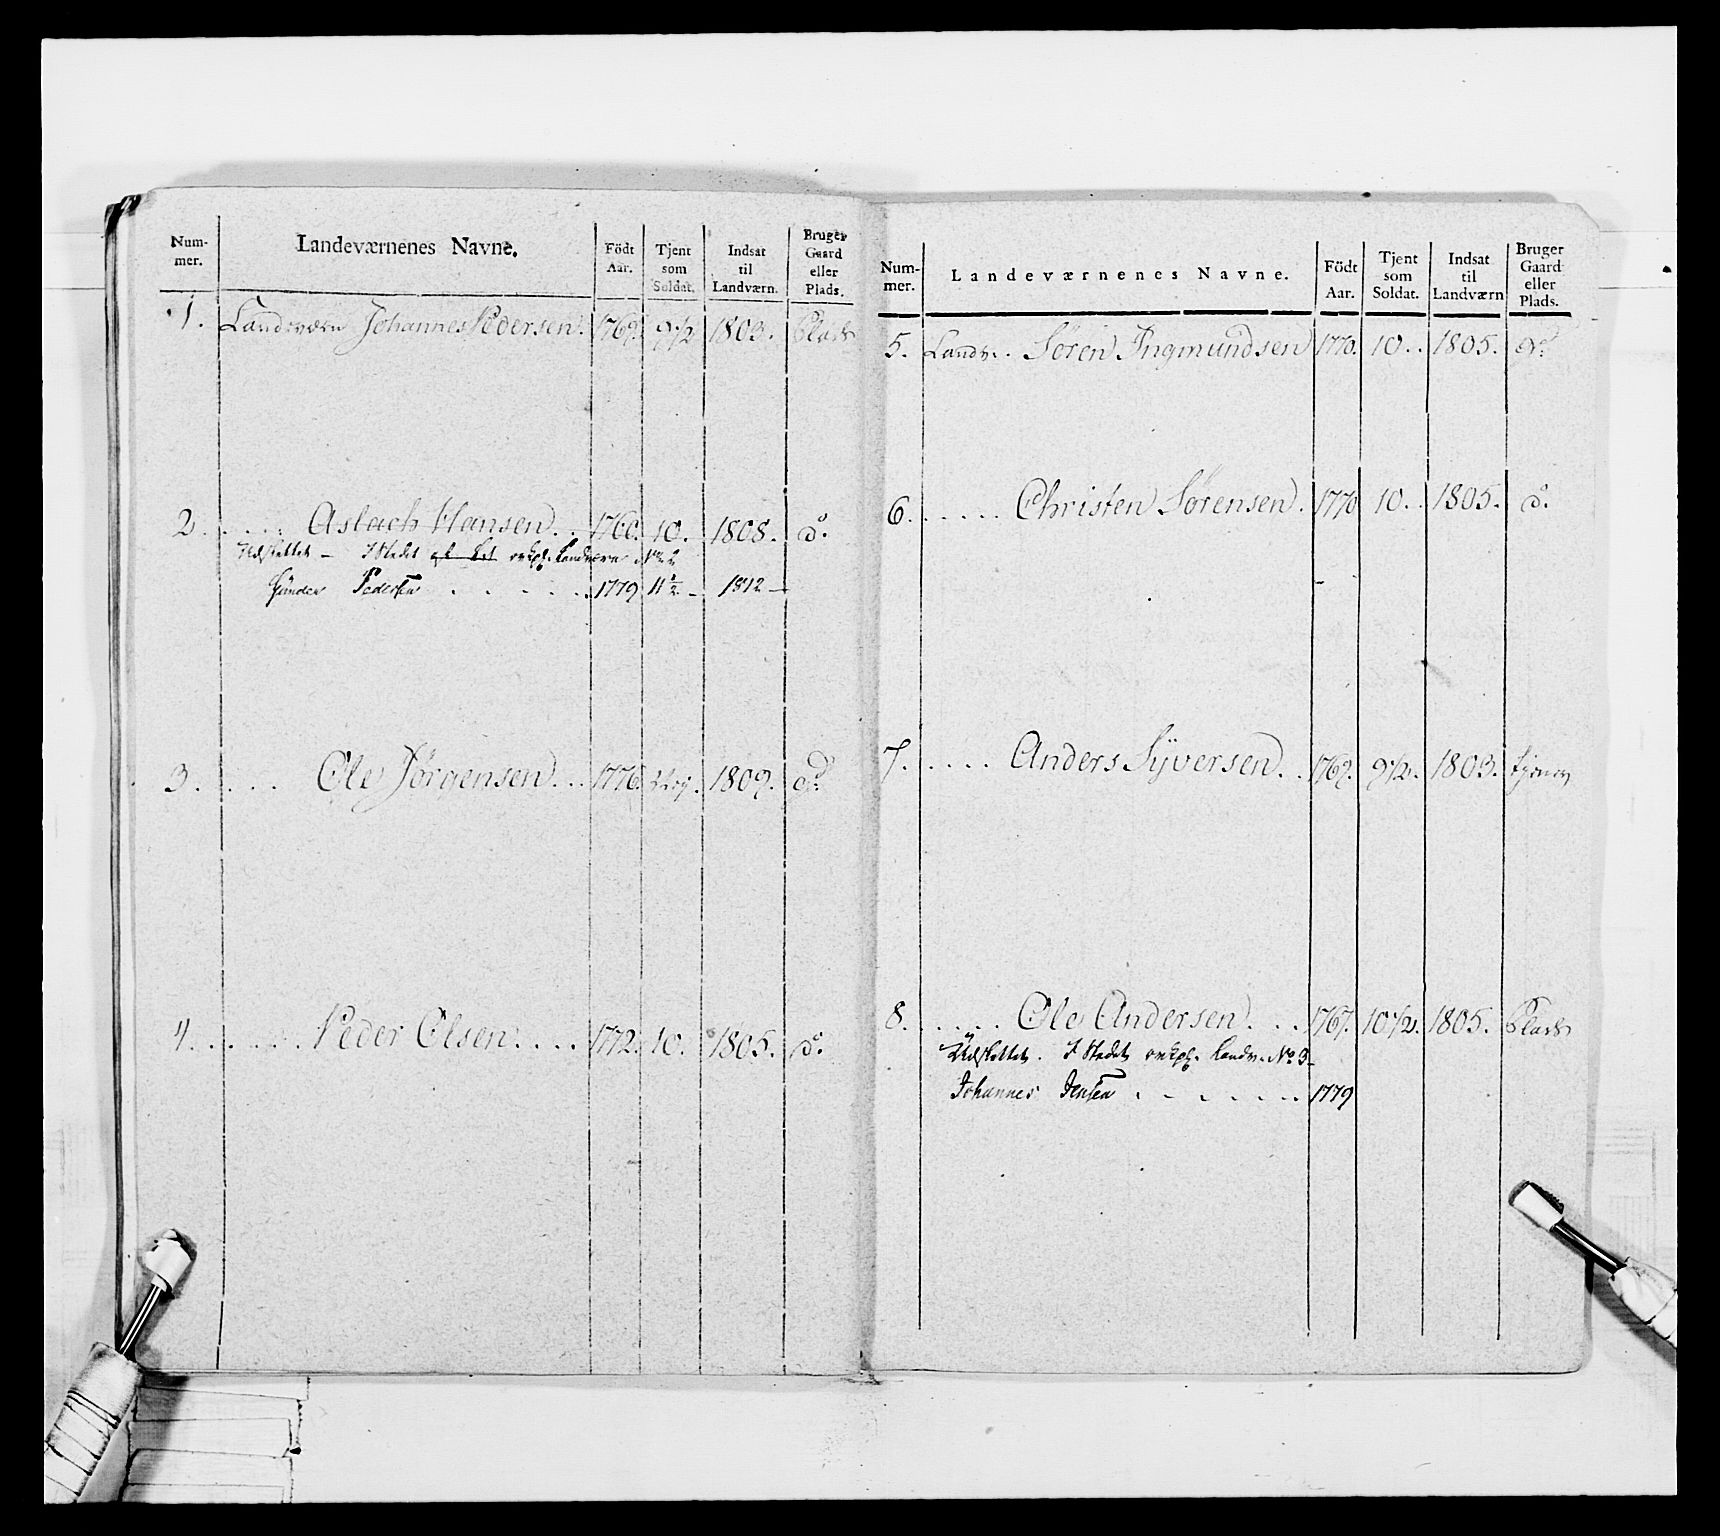 Num-
mer.
Landeværnenes Navne.
Födt
Aar.
Tjent
som
Soldat.
Indsat
til
Landværn.
Bruger
Gaard
eller
Plads.
1. Landeværn Johannes Pedersen. 1769. 9 1/2 1803. Plads
2. . . . . Aslach Hansen. . . 1766. 10. 1808. do.
Udslettet - I Stedet Landværn No 2
Gunder Pedersen . . . . . . 1779 11 1/2 - 1812 -
3. . . . . Ole Jörgensen. . . 1776. 1809. do.
4. . . . . . Peder Olsen. . . . . 1772. 10. 1805. do.
Num-
mer.
Landeværnenes Navne.
Födt
Aar.
Tjent
som
Soldat.
Indsat
til
Landværn
Bruger
Gaard
eller
Plads.
5. Landv. . Sören Ingmundsen 1770. 10. . 1805. do.
6. . . . . . Christen Sörensen. 1770 10. . 1805. do.
7. . . . . Anders Syversen. . . 1769. 9 1/2. 1803. tjener
8. . . . . . Ole Andersen. . . . 1767. 10 1/2. 1805. Plads
Udslettet. I Stedet Landv. No 3
Johannes Jensen . . . . . . . 1779